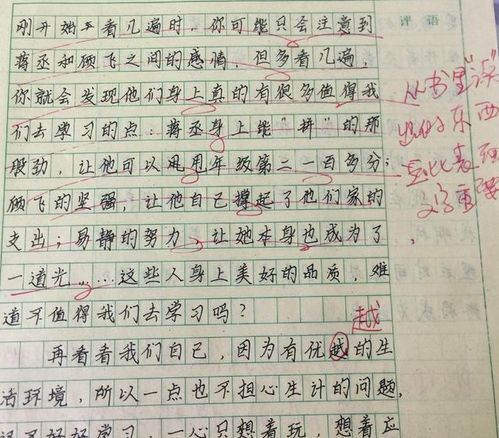 评语
刚开始不看几遍时，你可能只会注意到
蒋丞和顾飞之间的感情，但多看几遍，
你就会发现他们身上真的有很多值得我
们去学习的点：蒋丞身上能"拼"的那
股劲，让他可以甩甩年级第二一百多分；
顾飞的坚强，让他自己撑起了他们家的
支出；易静的努力，让她本身也成为了
一道光……这些人身上美好的品质，难
道不值得我们去学习吗？
越
再看看我们自己，因为有优越的生
活环境，所以一点也不担心生计的问题，
不好好学习，一心只想着玩，想着应
从书里"读"
出的东西
要